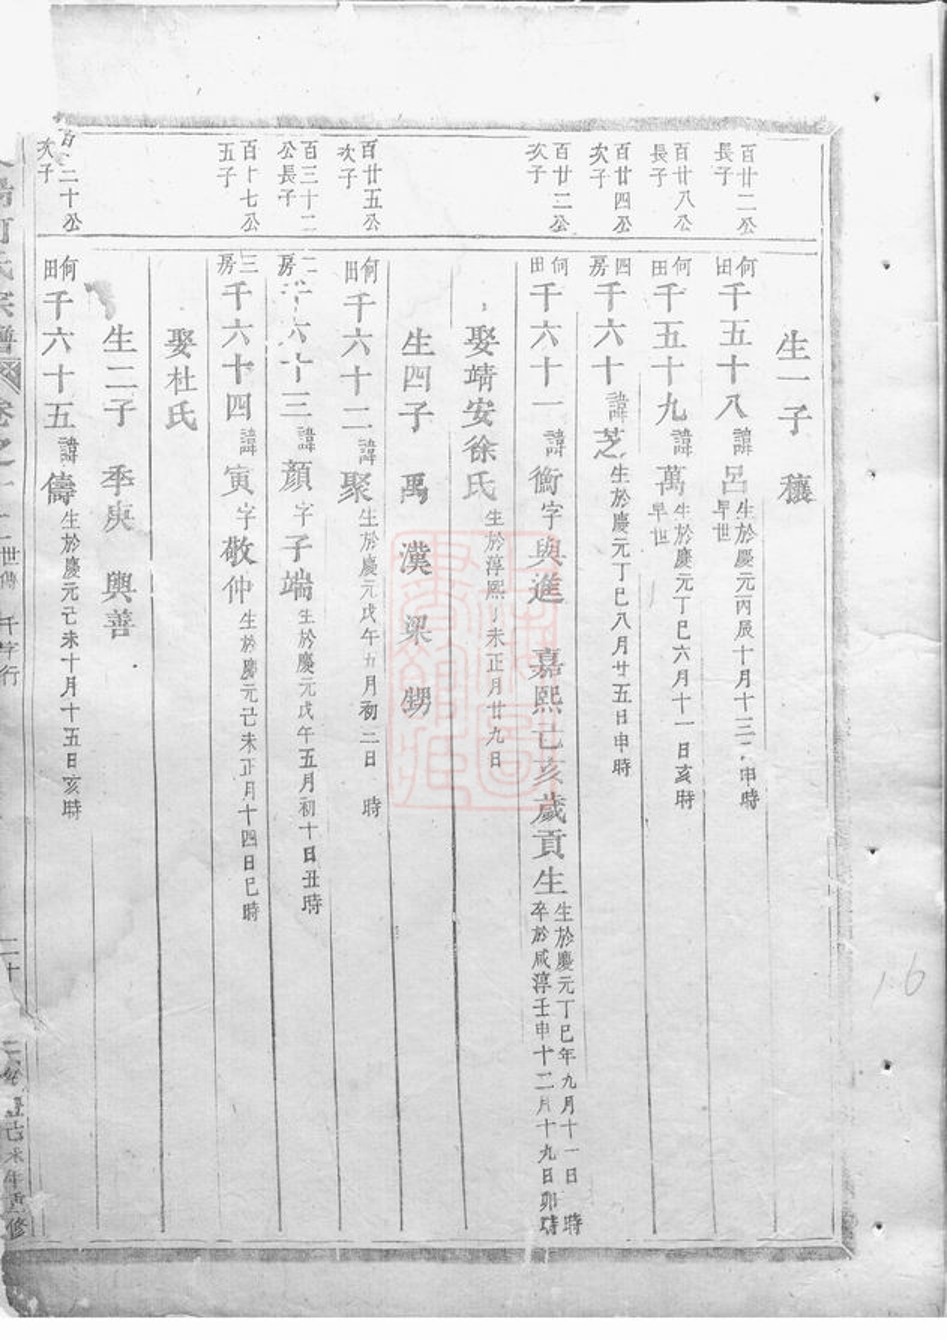 生一子 穰
百廿二公長子
何田千五十八諱呂生於慶元丙辰十月十三 申時早世
百廿八公長子
何田千五十九諱萬生於慶元丁巳六月十一日亥時早世
百廿四公次子
四房千六十諱芝生於慶元丁巳八月廿五日申時
百廿二公次子
何田千六十一諱衡字與進 嘉熙己亥歲貢生生於慶元丁巳年九月十一日 時卒於咸淳壬申十二月十九日卯時
娶靖安徐氏生於淳熙丁未正月廿九日
生四子 禹 漢 梁
百廿五公次子
何田千六十二諱聚生於慶元戊午五月初二日 時
百三十二公長子
二房千六十三諱顏字子端生於慶元戊午五月初十日丑時
百十七公五子
三房千六十四諱寅字敬仲生於慶元己未正月十四日巳時
娶杜氏
生二子 季庚 興善
百二十公次子
何田千六十五諱儔生於慶元己未十月十五日亥時
氏宗譜 卷之 世傳 千字行 二十 己未年重修